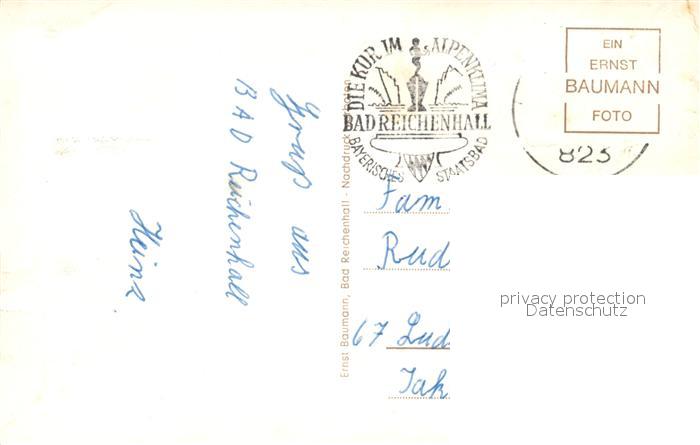 Gruß aus
BAD Reichenhall
Heinz
Ernst Baumann, Bad Reichenhall - Nachdruck
DIE KUR IM ALPENKLIMA
BAD REICHENHALL
BAYERISCHES STAATSBAD
EIN
ERNST
BAUMANN
FOTO
823
Fam
Rud
67 Lud
Jak
privacy protection
Datenschutz